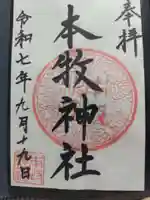 奉拝
本牧神社
令和七年九月十九日